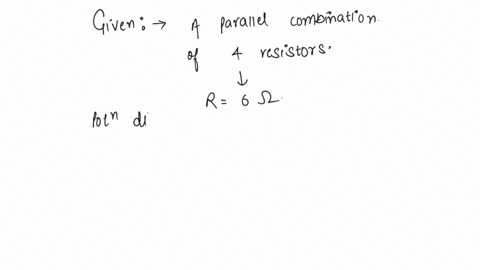 Given:→ A parallel combination
of 4 resistors.
↓
R = 6 Ω.
Potⁿ di